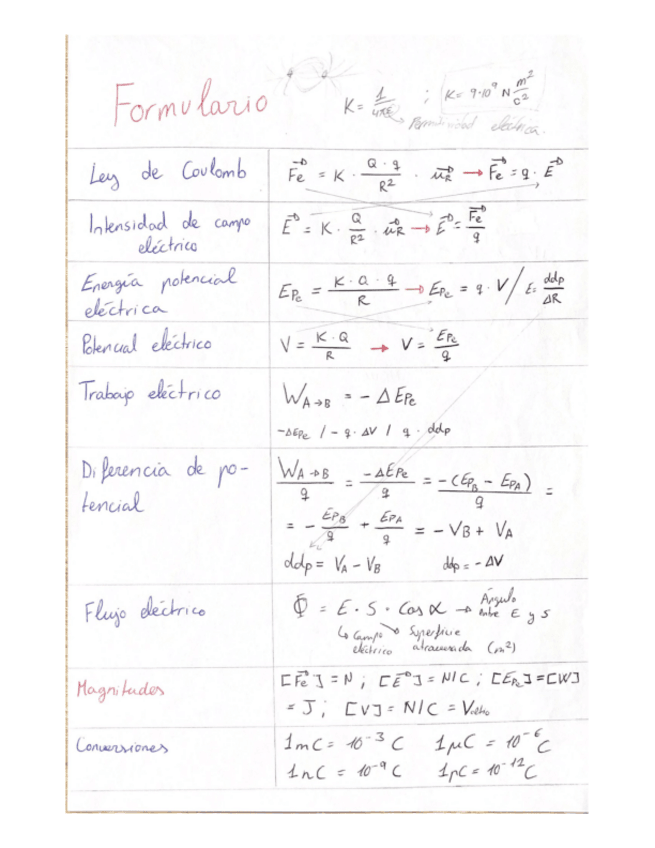 Formulario
K = 1/4πε ; K = 9·10⁹ N m²/c²
Permitividad eléctrica.
Ley de Coulomb
F⃗e = K · Q · q/R² · u⃗R → F⃗e = q · E⃗
Intensidad de campo
eléctrico
E⃗ = K · Q/R² · u⃗R → E⃗ = F⃗e/q
Energía potencial
eléctrica
EPe = K · Q · q/R → EPe = q · V / E = ddp/ΔR
Potencial eléctrico
V = K · Q/R → V = EPe/q
Trabajo eléctrico
WA→B = - Δ EPe
-ΔEPe / - q · ΔV / q · ddp
Diferencia de po-
tencial
WA→B/q = -ΔEPe/q = -(EPB - EPA)/q =
= - EPB/q + EPA/q = - VB + VA
ddp = VA - VB ddp = - ΔV
Flujo eléctrico
Φ = E · S · Cos α → Ángulo
entre E y S
↳ Campo
eléctrico
Superficie
atravesada (m²)
Magnitudes
[F⃗e] = N ; [E⃗] = N/C ; [EPe] = [W]
= J ; [V] = N/C = Voltio
Conversiones
1mC = 10⁻³ C 1μC = 10⁻⁶ C
1nC = 10⁻⁹ C 1pC = 10⁻¹² C